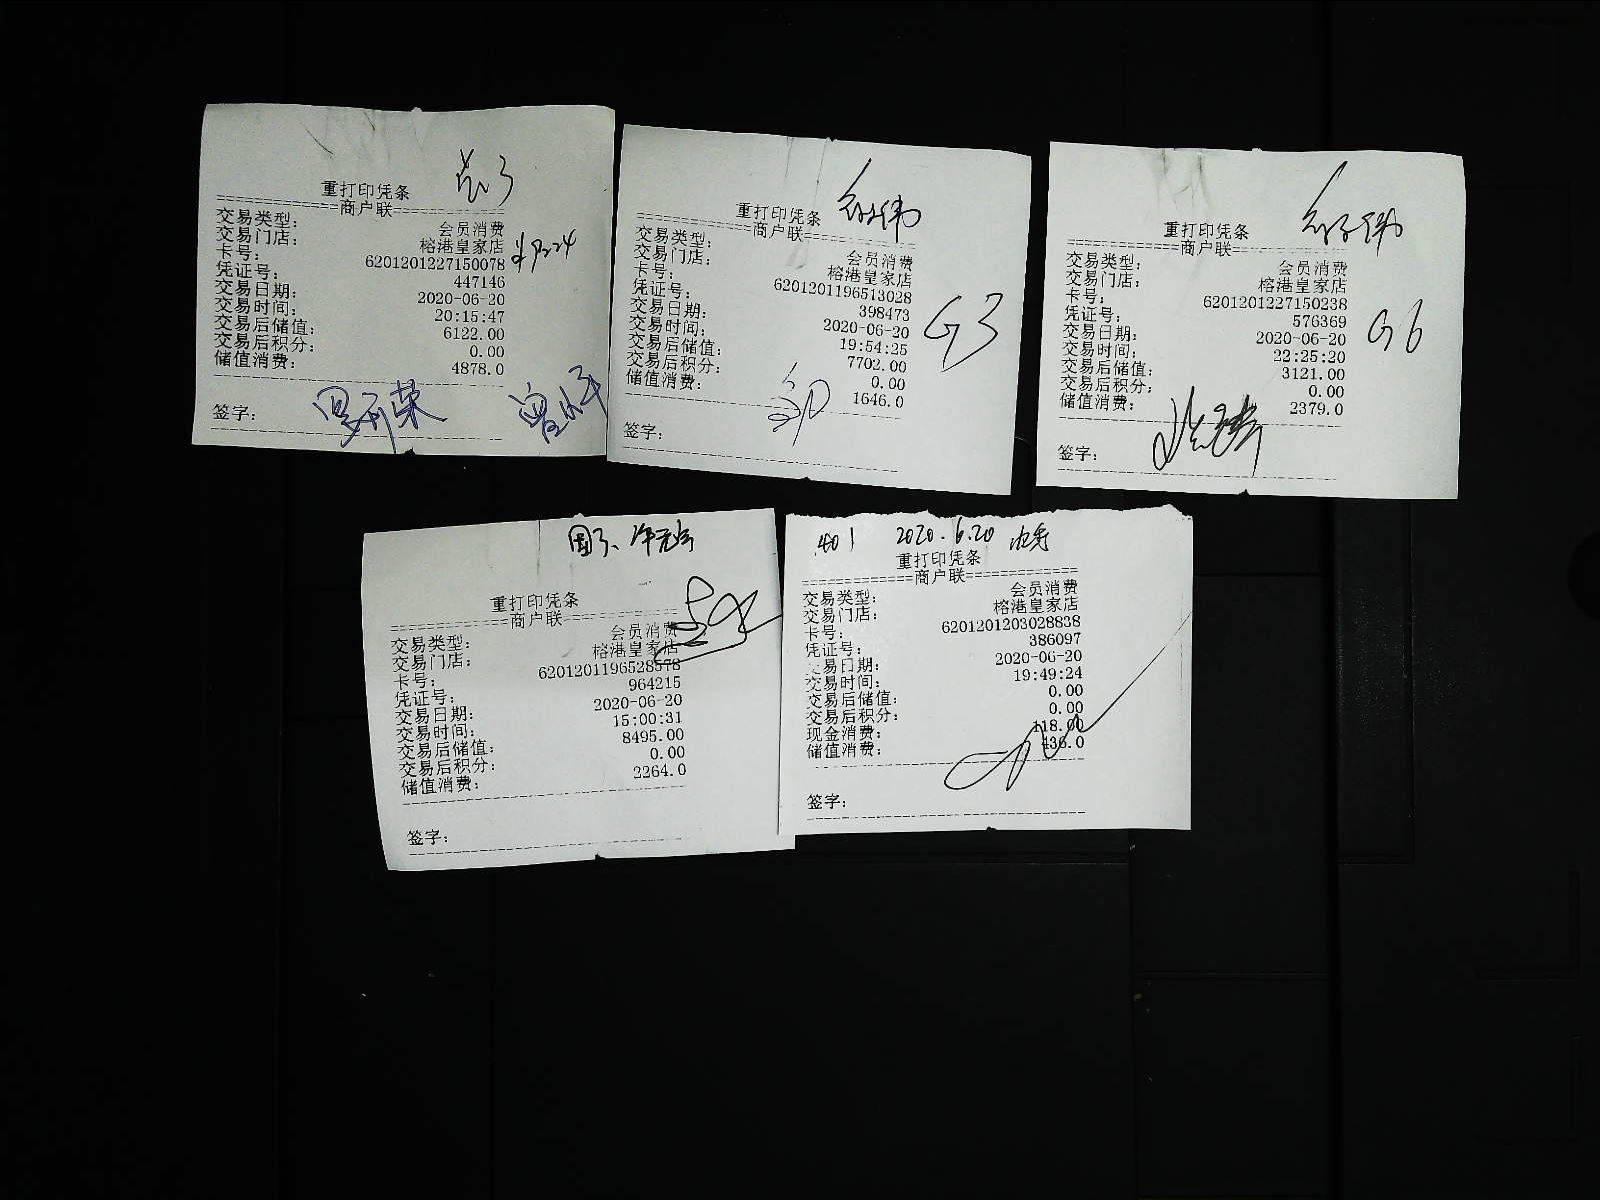 重打印凭条
============商户联============
交易类型： 会员消费
交易门店： 榕港皇家店
卡号： 6201201227150078
凭证号： 447146
交易日期： 2020-06-20
交易时间： 20:15:47
交易后储值： 6122.00
交易后积分： 0.00
储值消费： 4878.0
签字：
重打印凭条
============商户联============
交易类型： 会员消费
交易门店： 榕港皇家店
卡号： 6201201196513028
凭证号： 398473
交易日期： 2020-06-20
交易时间： 19:54:25
交易后储值： 7702.00
交易后积分： 0.00
储值消费： 1646.0
G3
签字：
重打印凭条
============商户联============
交易类型： 会员消费
交易门店： 榕港皇家店
卡号： 6201201227150238
凭证号： 576369
交易日期： 2020-06-20
交易时间： 22:25:20
交易后储值： 3121.00
交易后积分： 0.00
储值消费： 2379.0
G6
签字：
重打印凭条
============商户联============
交易类型： 会员消费
交易门店： 榕港皇家店
卡号： 6201201196528578
凭证号： 964215
交易日期： 2020-06-20
交易时间： 15:00:31
交易后储值： 8495.00
交易后积分： 0.00
储值消费： 2264.0
签字：
401 2020.6.20
重打印凭条
============商户联============
交易类型： 会员消费
交易门店： 榕港皇家店
卡号： 6201201203028838
凭证号： 386097
交易日期： 2020-06-20
交易时间： 19:49:24
交易后储值： 0.00
交易后积分： 0.00
现金消费： 118.00
储值消费： 436.0
签字：